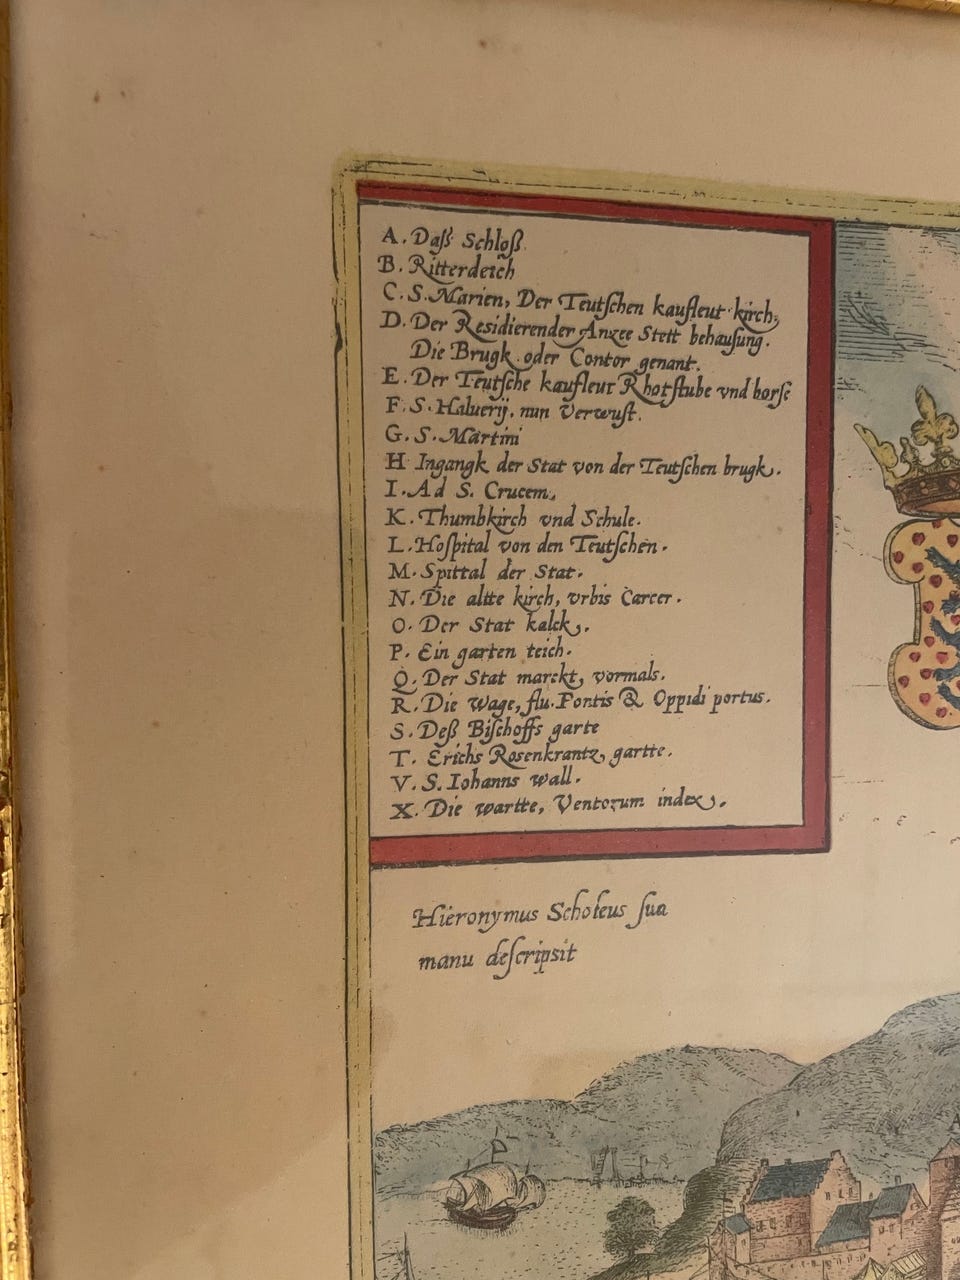 A. Daſs Schloß
B. Ritterdeich
C. S. Marien, Der Teutſchen kaufleut kirch,
D. Der Residierender Anzee Stett behauſung.
Die Brugk oder Contor genant.
E. Der Teutſche kaufleut Rhotſtube vnd borſe
F. S. Haluerij, nun Verwuſt.
G. S. Martini
H Ingangk der Stat von der Teutſchen brugk.
I. Ad S. Crucem,
K. Thumbkirch vnd Schule.
L. Hoſpital von den Teutſchen.
M. Spittal der Stat.
N. Die altte kirch, vrbis Carcer.
O. Der Stat kalck,.
P. Ein garten teich.
Q. Der Stat marckt, vormals.
R. Die wage, flu. Pontis & Oppidi portus.
S. Deß Biſchoffs garte
T. Erichs Rosenkrantz, gartte.
V. S. Iohanns wall.
X. Die wartte, Ventorum index.
Hieronymus Scholeus ſua
manu deſcripsit
A